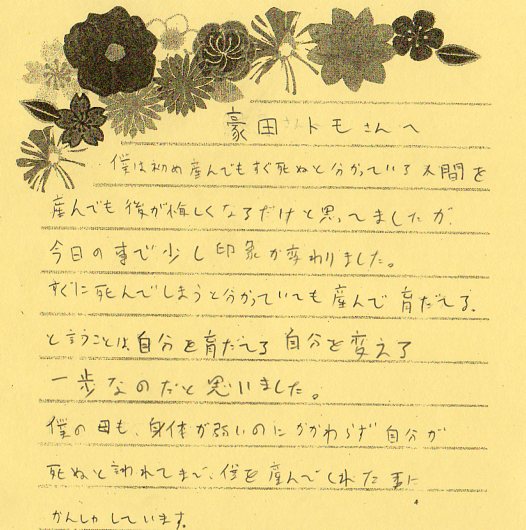 豪田トモさんへ
僕は初め産んでもすぐ死ぬと分かっている人間を
産んでも後が悔しくなるだけと思ってましたが、
今日の事で少し印象が変わりました。
すぐに死んでしまうと分かっていても産んで育だてる。
と言うことは自分を育だてる自分を変える
一歩なのだと思いました。
僕の母も、身体が弱いのにかかわらず自分が
死ぬと訊れてまで、僕を産んでくれた事に
かんしゃしています。